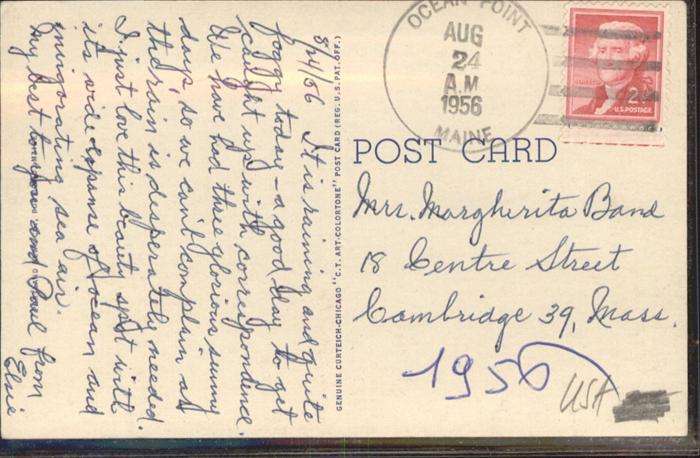 8/24/56 It is raining and quite
foggy today - a good day to get
caught up with correspondence.
We have had three glorious sunny
days, so we can't complain as
the rain is desperately needed.
I just love this beauty spot with
its wide expanse of ocean and
invigorating sea air.
My best to you and Paul from
Elsie
GENUINE CURTEICH-CHICAGO "C.T. ART-COLORTONE" POST CARD (REG. U.S. PAT. OFF.)
OCEAN POINT
AUG
24
A.M
1956
MAINE
2¢
U.S. POSTAGE
POST CARD
Mrs. Margherita Band
18 Centre Street
Cambridge 39, Mass.
1956
USA